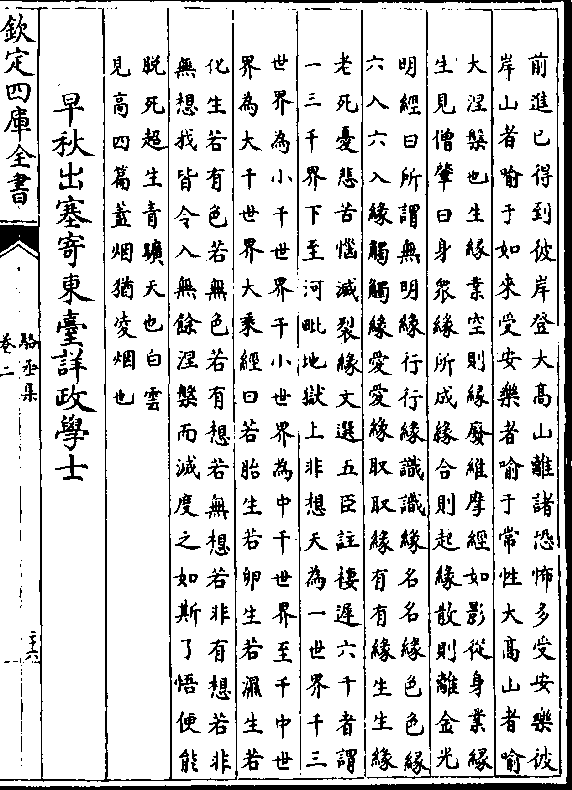 前進已得到彼岸登大高山離諸恐怖多受安樂彼
岸山者喻于如來受安樂者喻于常性大高山者喻
大涅槃也生緣業空則緣廢維摩經如影從身業緣
生見僧肇曰身衆緣所成緣合則起緣散則離金光
明經曰所謂無明緣行行緣識識緣名名緣色色緣
六入六入緣觸觸緣愛愛緣取取緣有有緣生生緣
老死憂悲苦惱滅裂緣文選五臣註棲遲六千者謂
一三千界下至河毗地獄上非想天為一世界千三
世界為小千世界千小世界為中千世界至千中世
界為大千世界大乘經曰若胎生若卵生若濕生若
化生若有色若無色若有想若無想若非有想若非
無想我皆令入無餘涅槃而滅度之如斯了悟便能
脫死超生青曠天也白雲
見高四篇蓋烟猶凌烟也
早秋出塞寄東臺詳政學士
欽定四庫全書
駱丞集
卷二
二十六